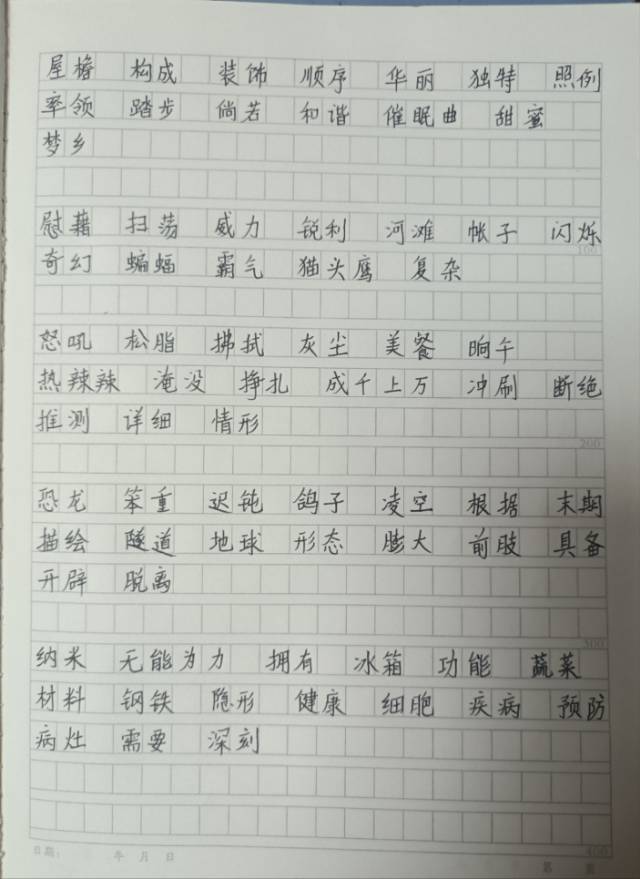 屋檐 构成 装饰 顺序 华丽 独特 照例
率领 踏步 倘若 和谐 催眠曲 甜蜜
梦乡
慰藉 扫荡 威力 锐利 河滩 帐子 闪烁
100
奇幻 蝙蝠 霸气 猫头鹰 复杂
怒吼 松脂 拂拭 灰尘 美餐 晌午
热辣辣 淹没 挣扎 成千上万 冲刷 断绝
推测 详细 情形
200
恐龙 笨重 迟钝 鸽子 凌空 根据 末期
描绘 隧道 地球 形态 膨大 前肢 具备
开辟 脱离
300
纳米 无能为力 拥有 冰箱 功能 蔬菜
材料 钢铁 隐形 健康 细胞 疾病 预防
病灶 需要 深刻
400
日期： 年 月 日
第 页